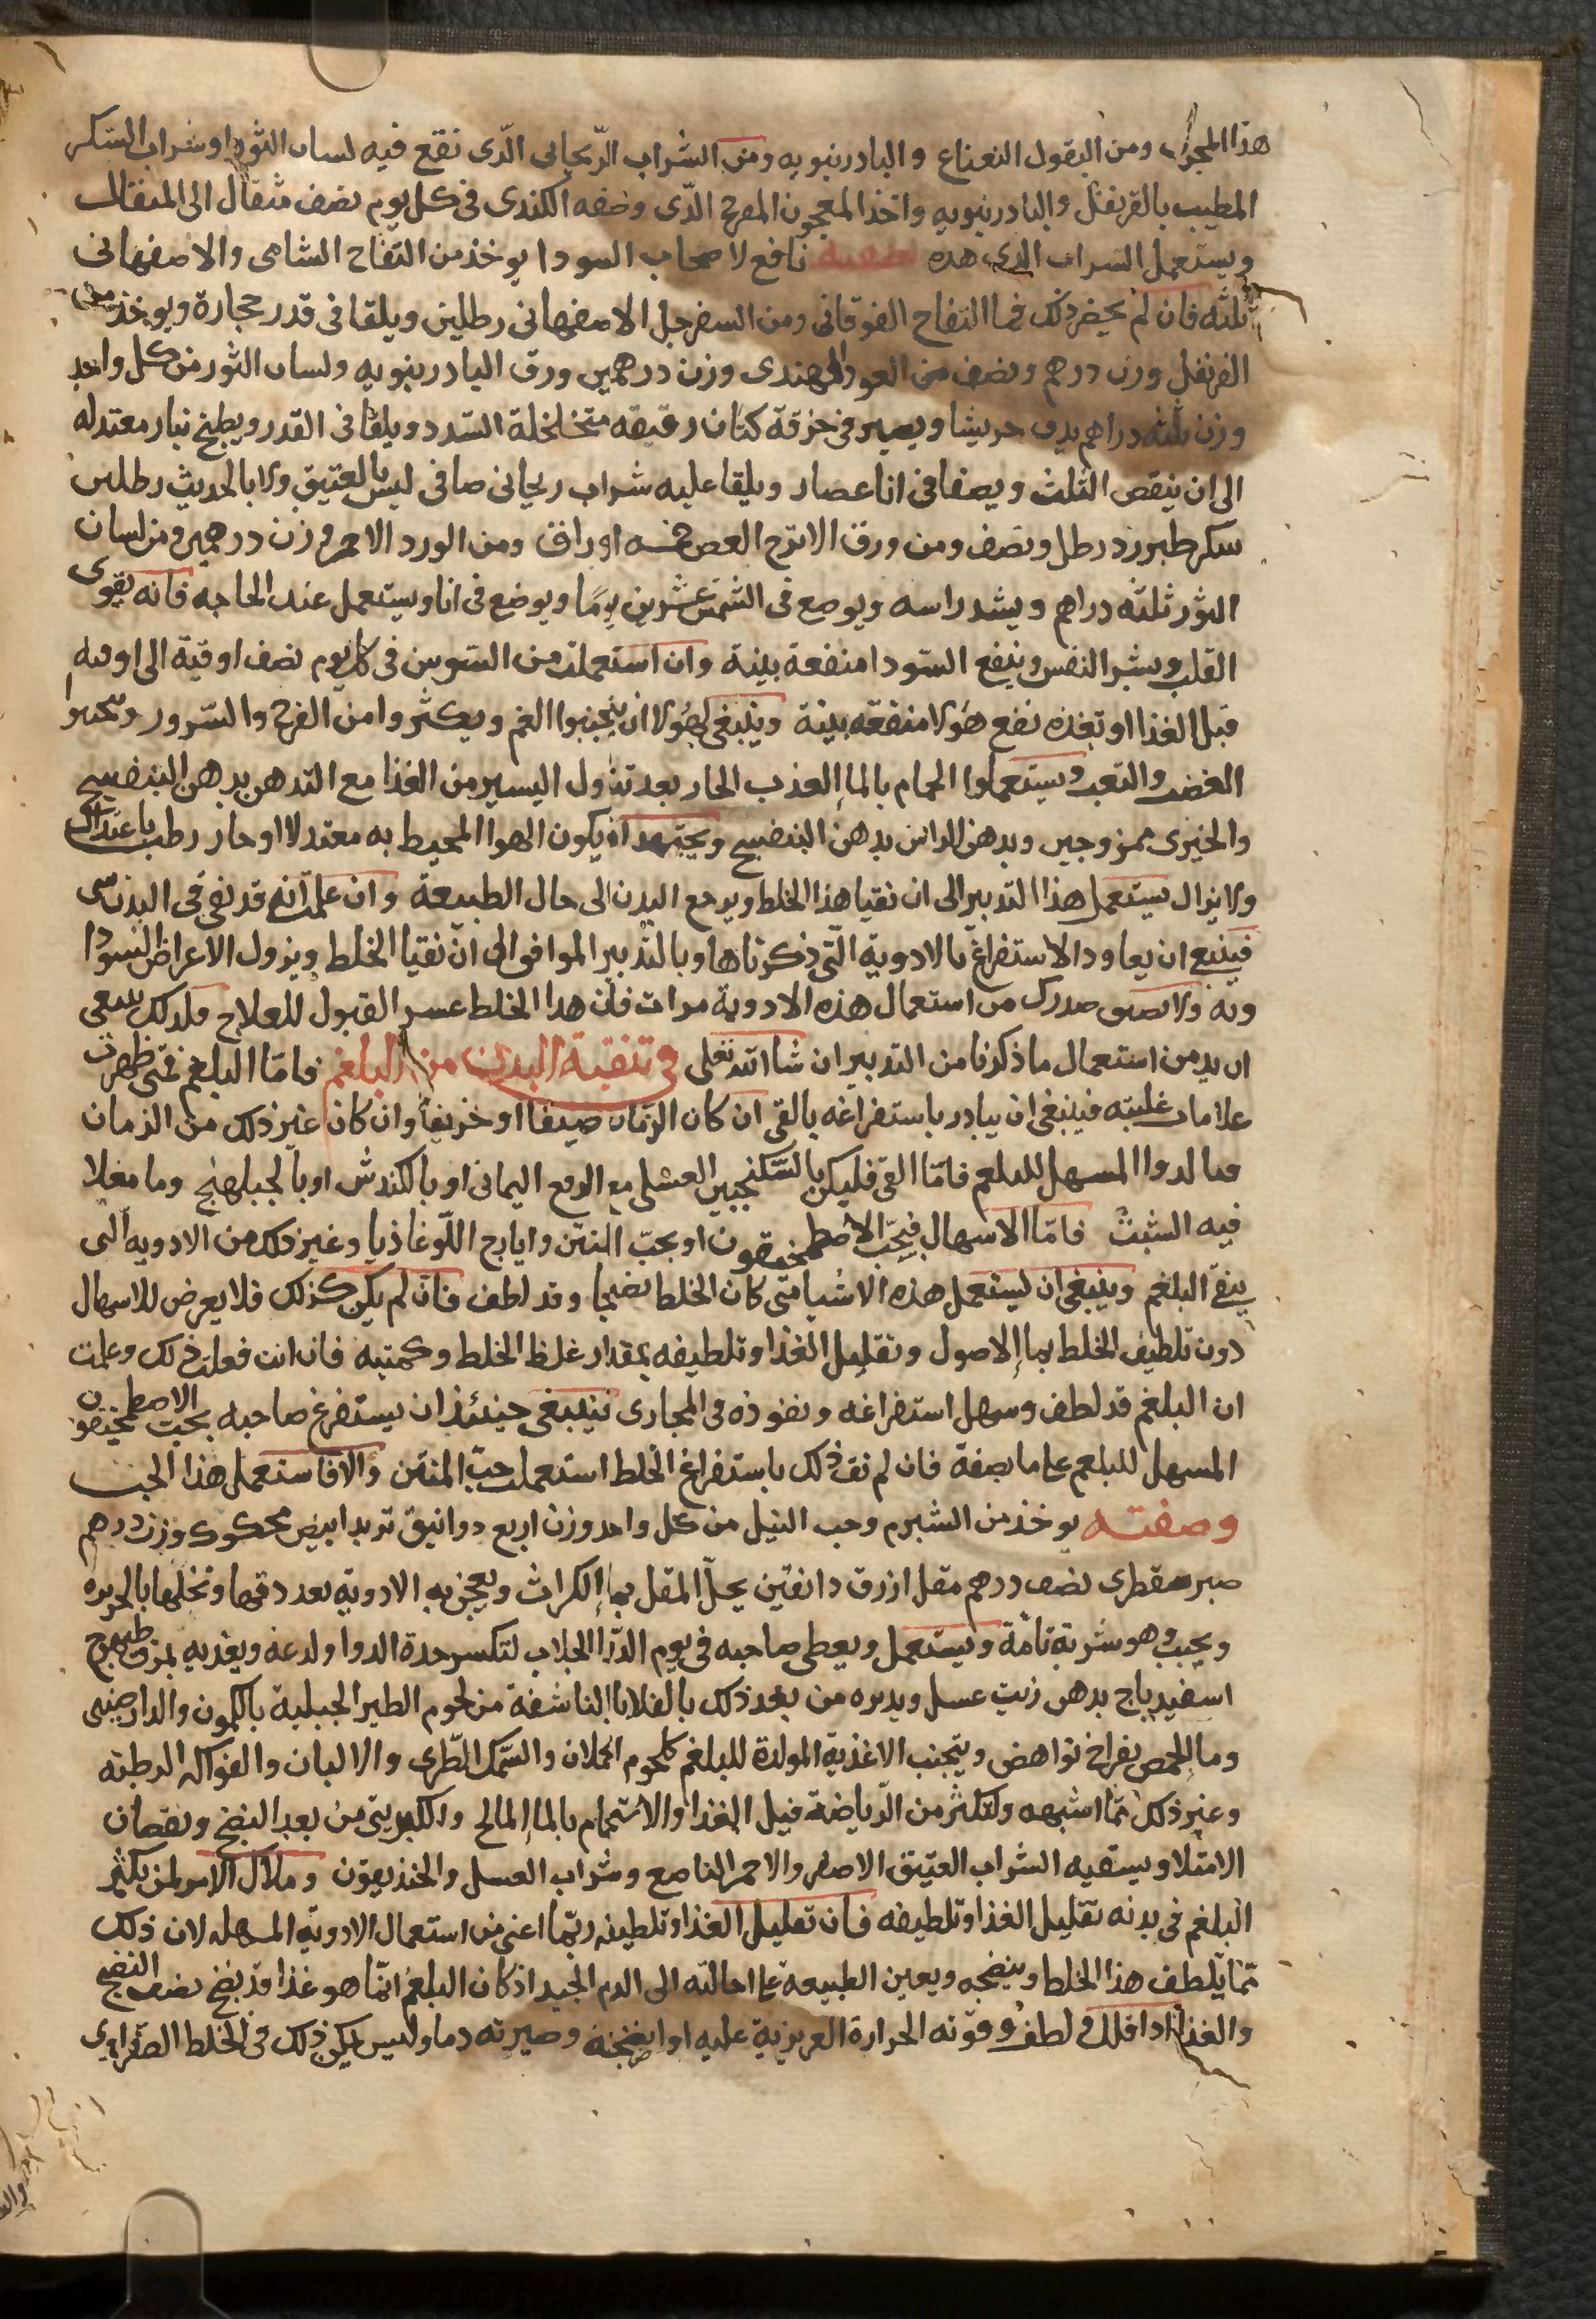 هذا المجرا ومن البقول النعناع والبادرنبويه ومن الشراب الريحانى الذى نقع فيه لسان الثور او شراب السكر
المطيب بالقرنفل والبادرنبويه واخذ المعجون المفرح الذى وصفه الكندى فى كل يوم نصف مثقال الى المثقال
ويستعمل الشراب الذى هذه صفته نافع لاصحاب السودا يوخذ من التفاح الشامى والاصفهانى
ثلثه فان لم يحضر ذلك فما التفاح الفوقانى ومن السفرجل الاصفهانى رطلين ويلقا فى قدر حجارة ويوخذ من
القرنفل وزن درهم ونصف من العود الهندى وزن درهمين ورق البادرنبويه ولسان الثور من كل واحد
وزن ثلثه دراهم يدق جريشا ويصير فى خرقة كتان رقيقه متخلخلة السدد ويلقا فى القدر ويطبخ بنار معتدله
الى ان ينقص الثلث ويصفا فى انا عصار ويلقا عليه شراب ريحانى صافى ليس بالعتيق ولا بالحديث رطلين
سكر طبرزد رطل ونصف ومن ورق الاترج الغض خمسه اوراق ومن الورد الاحمر وزن درهمين ومن لسان
الثور ثلثه دراهم ويشد راسه ويوضع فى الشمس عشرين يوما ويوضع فى انا ويستعمل عند الحاجه فانه يقوى
القلب ويسر النفس وينفع السودا منفعة بينة وان استعملت من السوس فى كل يوم نصف اوقية الى اوقيه
قبل الغذا او بعده نفع هولا منفعه بينة وينبغى لهولا ان يتجنبوا الغم ويكثروا من الفرح والسرور ويتجنبوا
الغضب والتعب ويستعملوا الحمام بالما العذب الحار بعد تناول اليسير من الغذا مع التدهن بدهن البنفسج
والخيرى ممزوجين وبدهن الراس بدهن البنفسج ويجتهد ان يكون الهوا المحيط به معتدلا او حار رطب باعتدال
ولا يزال يستعمل هذا التدبير الى ان نقيا هذا الخلط ويرجع البدن الى حال الطبيعة وان علمت انه قد بقى فى البدن شى
فينبغ ان يعاود الاستفراغ بالادوية التى ذكرناها وبالتدبير الموافق الى ان نقيا الخلط ويزول الاعراض السودا
ويه ولا يضيق صدرك من استعمال هذه الادوية مرات فان هذا الخلط عسر القبول للعلاج فلذلك ينبغى
ان يدمن استعمال ما ذكرنا من التدبير ان شا الله تعلى فى تنقية البدن من البلغم فاما البلغم فمتى ظهرت
علامات غلبته فينبغى ان يبادر باستفراغه بالقى ان كان الزمان صيفا او خريفا وان كان غير ذلك من الزمان
فبالدوا المسهل للبلغم فاما القى فليكن بالسكنجبين العسلى مع الـ اليمانى او بالكندش او بالجبلهنج وما مغلا
فيه الشبث فاما الاسهال فبحب الاصطمخيقون او بحب المنتن وايارج اللوغاذيا وغير ذلك من الادويه التى
ينقى البلغم وينبغى ان يستعمل هذه الاشيا متى كان الخلط نضيجا وقد لطف فان لم يكن كذلك فلا يعرض للاسهال
دون تلطيف الخلط بما الاصول وتقليل الغذا وتلطيفه بمقدار غلظ الخلط وكميته فان انت فعلت ذلك وعلمت
ان البلغم قد لطف وسهل استفراغه ونفوذه فى المجارى فينبغى حينئذ ان يستفرغ صاحبه بحب الاصطمخيقون
المسهل للبلغم على ما بصفة فان لم نقف ذلك باستفراغ الخلط استعملت حب المنتن والا فاستعمل هذا الحب
وصفته يوخذ من الشبرم وحب النيل من كل واحد وزن اربع دوانيق تربد ابيض محكوك وزن درهم
صبر سقطرى نصف درهم مقل ازرق دانقين يحل المقل بما الكراث ويعجن به الادوية بعد دقها ونخلها بالحريره
ويحبب وهو شربة تامة ويستعمل ويعطى صاحبه فى يوم الدوا الجلاب لتكسر حدة الدوا ولدعه ويغذيه بمرق طيهوج
اسفيدباج بدهن زيت عسل ويدبره من بعد ذلك بالقلايا الناشفة من لحوم الطير الجبلية بالكمون والدارصينى
وما الحمص بفراخ نواهض ويتجنب الاغذية المولدة للبلغم كلحوم الحملان والسمك الطرى والالبان والفواكه الرطبه
وغير ذلك مما اشبهه ولتكثر من الرياضة قبل الغذا والاستحمام بالما المالح والكبريتى من بعد النضج ونقصان
الامتلا ويسقيه الشراب العتيق الاصفر والاحمر الناصع وشراب العسل والخنديقون وملاك الامر لمن يكثر
البلغم فى بدنه تقليل الغذا وتلطيفه فان تقليل الغذا وتلطيفه ربما اغنى من استعمال الادوية المسهله لان ذلك
مما يلطف هذا الخلط وينضجه ويعين الطبيعة على احالته الى الدم الجيد اذ كان البلغم انما هو غذا قد نضج نصف النضج
والغذا اذا قلل ولطف وقوته الحرارة الغريزية عليه او انضجته وصيرته دما وليس يمكن ذلك فى الخلط الصفراوى